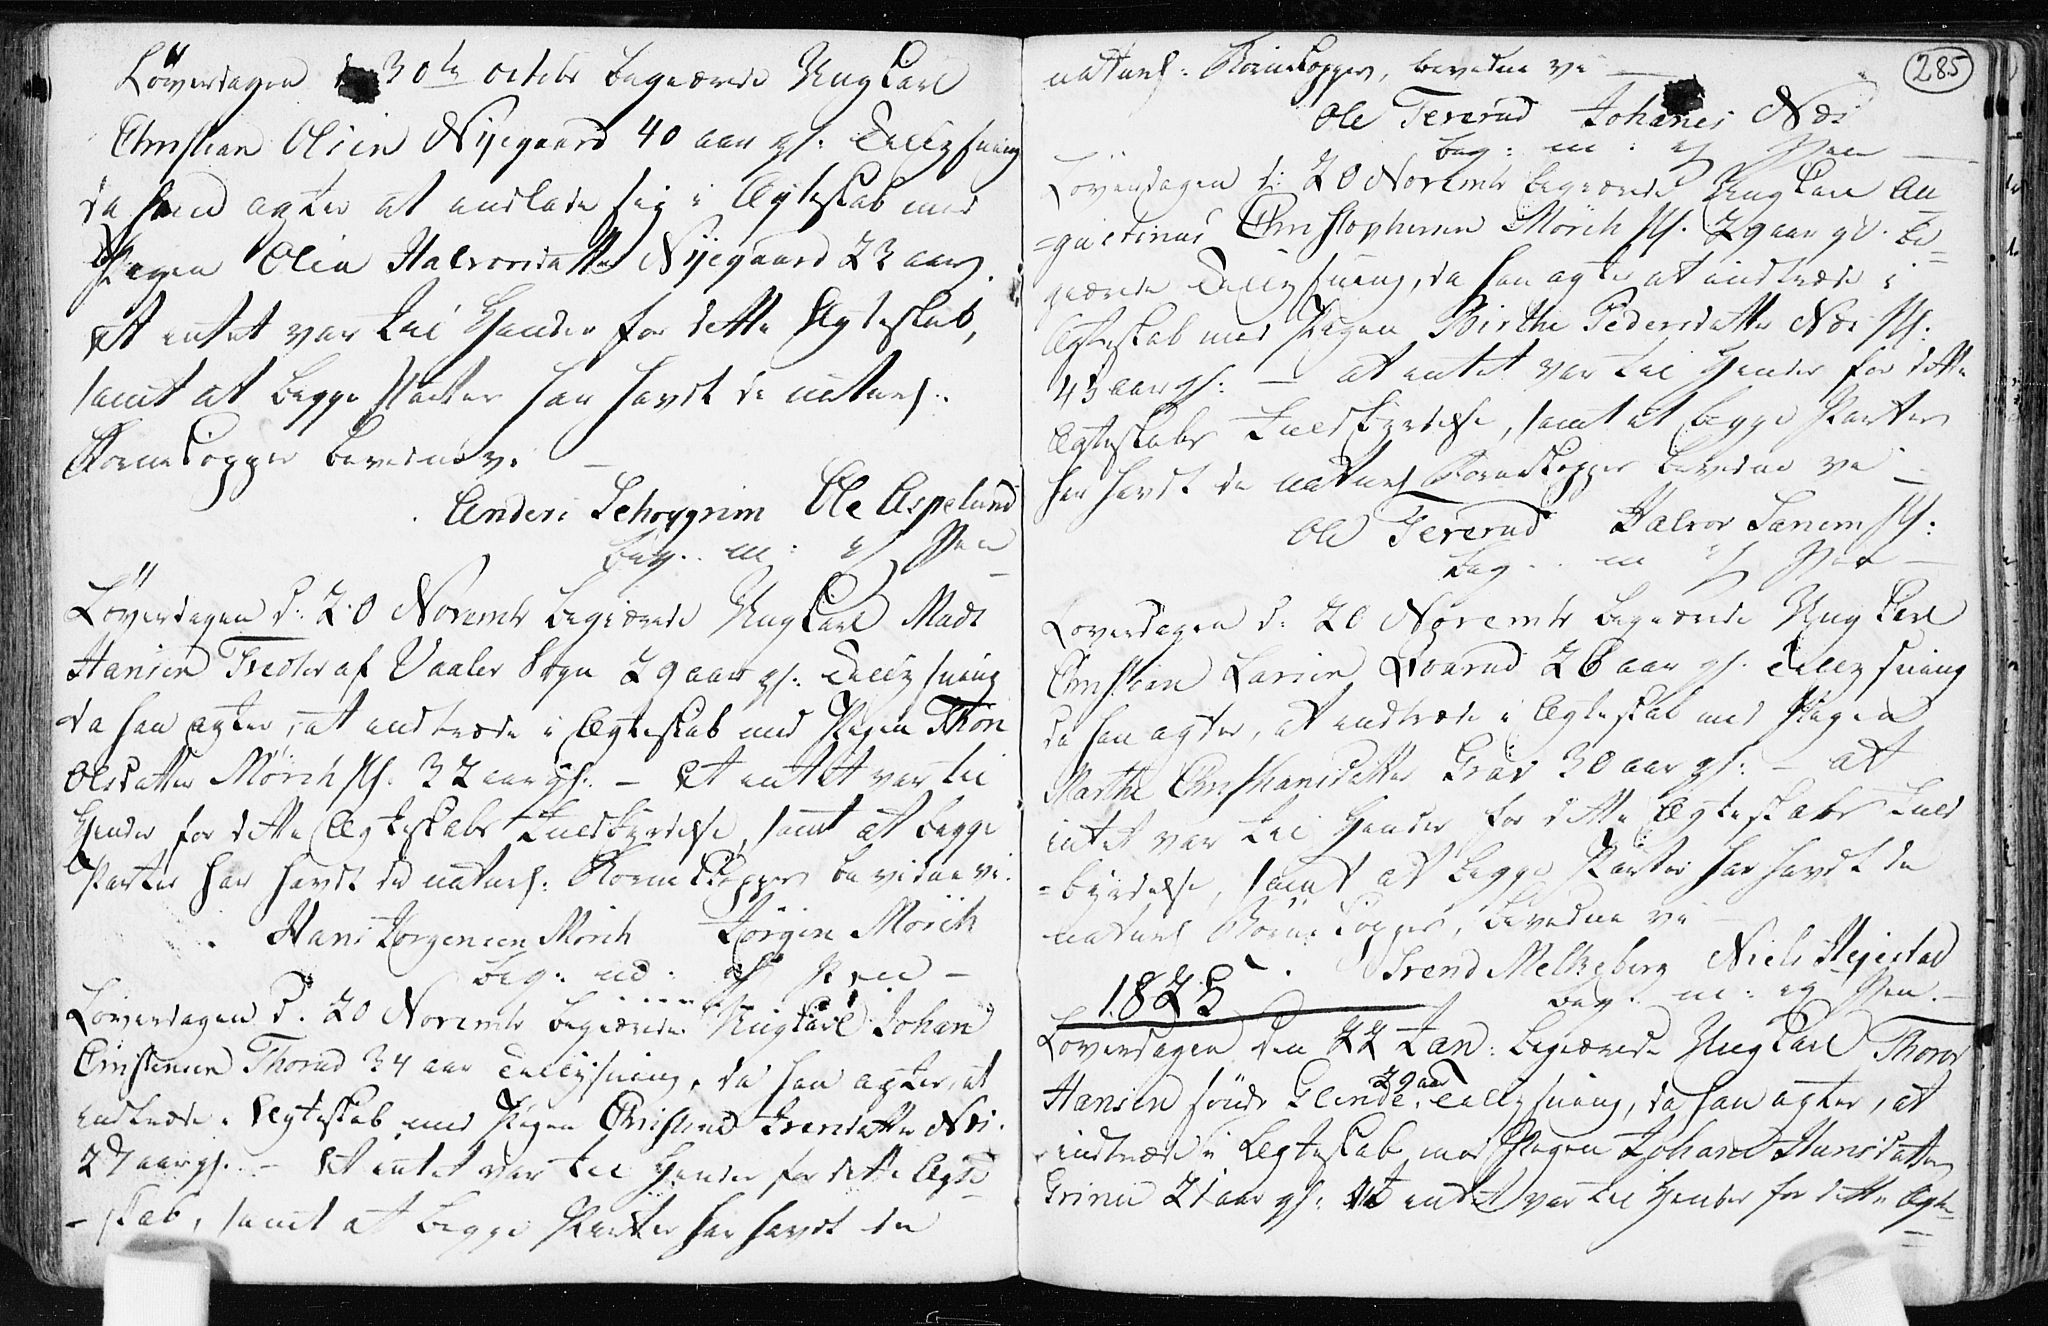 Löverdagen d 30te octobr begiærede Ung Carl
Christian Olsen Nÿegaard 40 aar gl: Tillysning
da hand agter at indlade sig i Ægteskab med
Pigen Olea Halvorsdatter Nÿegaard 23 aar
At intet var til Hinder for dette Ægteskab,
samt at begge Parter har havdt de naturl:
Børnekopper bevidner vi
Anders Schoygrim Ole Aspelund
beg: m: p: Pen
Löverdagen d: 20 Novembr begiærede Ung Carl Mads
Hansen Treoter af Vaaler Sogn 29 aar gl: Tillysning
da han agter, at indtræde i Ægteskab med Pigen Thon
Olsdatter Mörch 32 aar gl. - At intet var til
Hinder for dette Ægteskabs Fuldbyrdelse, samt at begge
Parter har havdt de naturl: Børnekopper bevidne vi.
Hans Jörgensen Mörch Jörgen Mörch
beg: m: p: Pen -
Löverdagen d. 20 Novembr begiærede Ung Carl Johan
Christensen Thorud 34 aar Tillysning, da han agter, at
indtræde i Ægteskab med Pigen Christine Iversdatter Næs.
27 aar gl. - At intet var til Hinder for dette Ægte
-skab, samt at begge Parter har havdt de
285
naturl: Börnekopper, bevidne vi
Ole Tererud Johanes Næs
beg: m: p: Pen
Löverdagen d: 20 Novembr begiærede Ung Carl Au
=gustinus Christophersen Mörch 29 aar gl. be=
giærede Tillysning, da han agter at indtræde i
Ægteskab med Pigen Birthe Pedersdatter Næs
43 aar gl: - at intet var til Hinder for dette
Ægteskabs Fuldbyrdelse, samt at begge Parter
har havdt de naturl Børnekopper bevidne vi -
Ole Tererud Halvor Sanem
beg: m p: Pen -
Löverdagen d: 20 Novembr begiærede Ung Carl
Christian Larsen Loarud 26 aar gl. Tillysning
da han agter, at indtræde i Ægteskab med Pigen
Marthe Christiansdatter Grav 30 aar gl: - at
intet var til Hinder for dette Ægteskabs Fuld
=byrdelse, samt at begge Parter har havdt de
naturl Börnekopper, bevidne vi -
Svend Melkeberg Niels Hejestad
beg: m: p: Pen. -
1825
Löverdagen den 22 Jan: begiærede Ung Carl Thoror
Hansen söndr Glende 29 aar Tillysning, da han agter, at
indtræde i Ægteskab med Pigen Johane Hansdatter
Grinie 21 aar gl: At intet var til Hinder for dette Ægte=